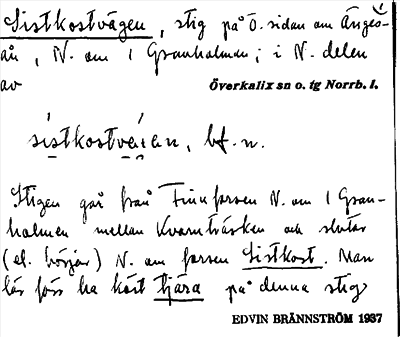 Sistkostvägen, stig på Ö. sidan om Änges-
ån, N. om 1 Granholmen; i N. delen
av Överkalix sn o. tg Norrb. l.
sistkostvä́ian, bf. n.
Stigen går från Finnforsen N. om 1 Gran-
holmen mellan Kvarnträsken och slutar
(el. börjar) N. om forsen Sistkost. Man
lär förr ha kört tjära på denna stig
EDVIN BRÄNNSTRÖM 1937